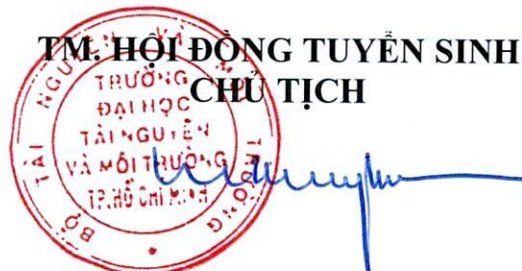 TM. HỘI ĐỒNG TUYỂN SINH
CHỦ TỊCH
BỘ TÀI NGUYÊN VÀ MÔI TRƯỜNG
TRƯỜNG
ĐẠI HỌC
TÀI NGUYÊN
VÀ MÔI TRƯỜNG
TP.HỒ CHÍ MINH